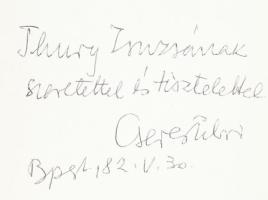 Thury Zsuzsának
szeretettel és tisztelettel
Cseres Tibor
Bpest, 82. V. 30.